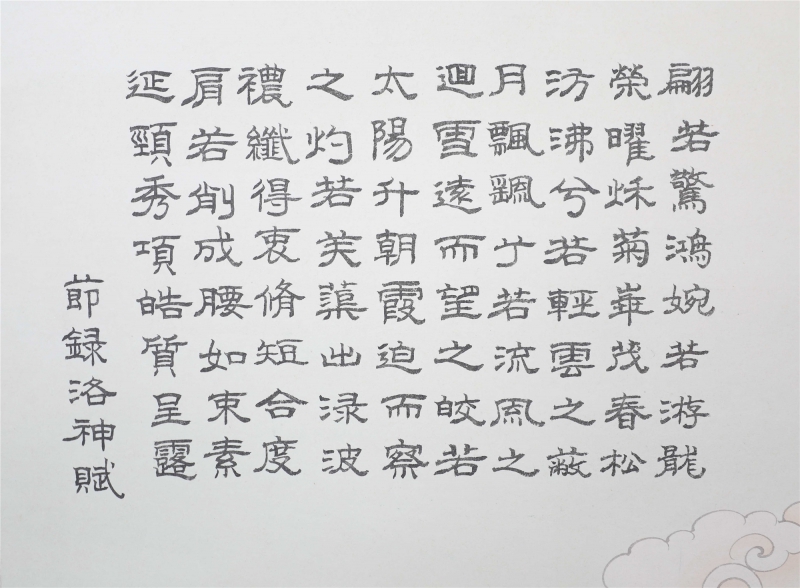 翩若驚鴻婉若游龍
榮曜秌菊華茂春松
汸沸兮若輕雲之蔽
月飄飖兮若流風之
迴雪遠而望之皎若
太陽升朝霞迫而察
之灼若芙蕖出渌波
襛纖得衷脩短合度
肩若削成腰如束素
延頸秀項皓質呈露
節録洛神賦